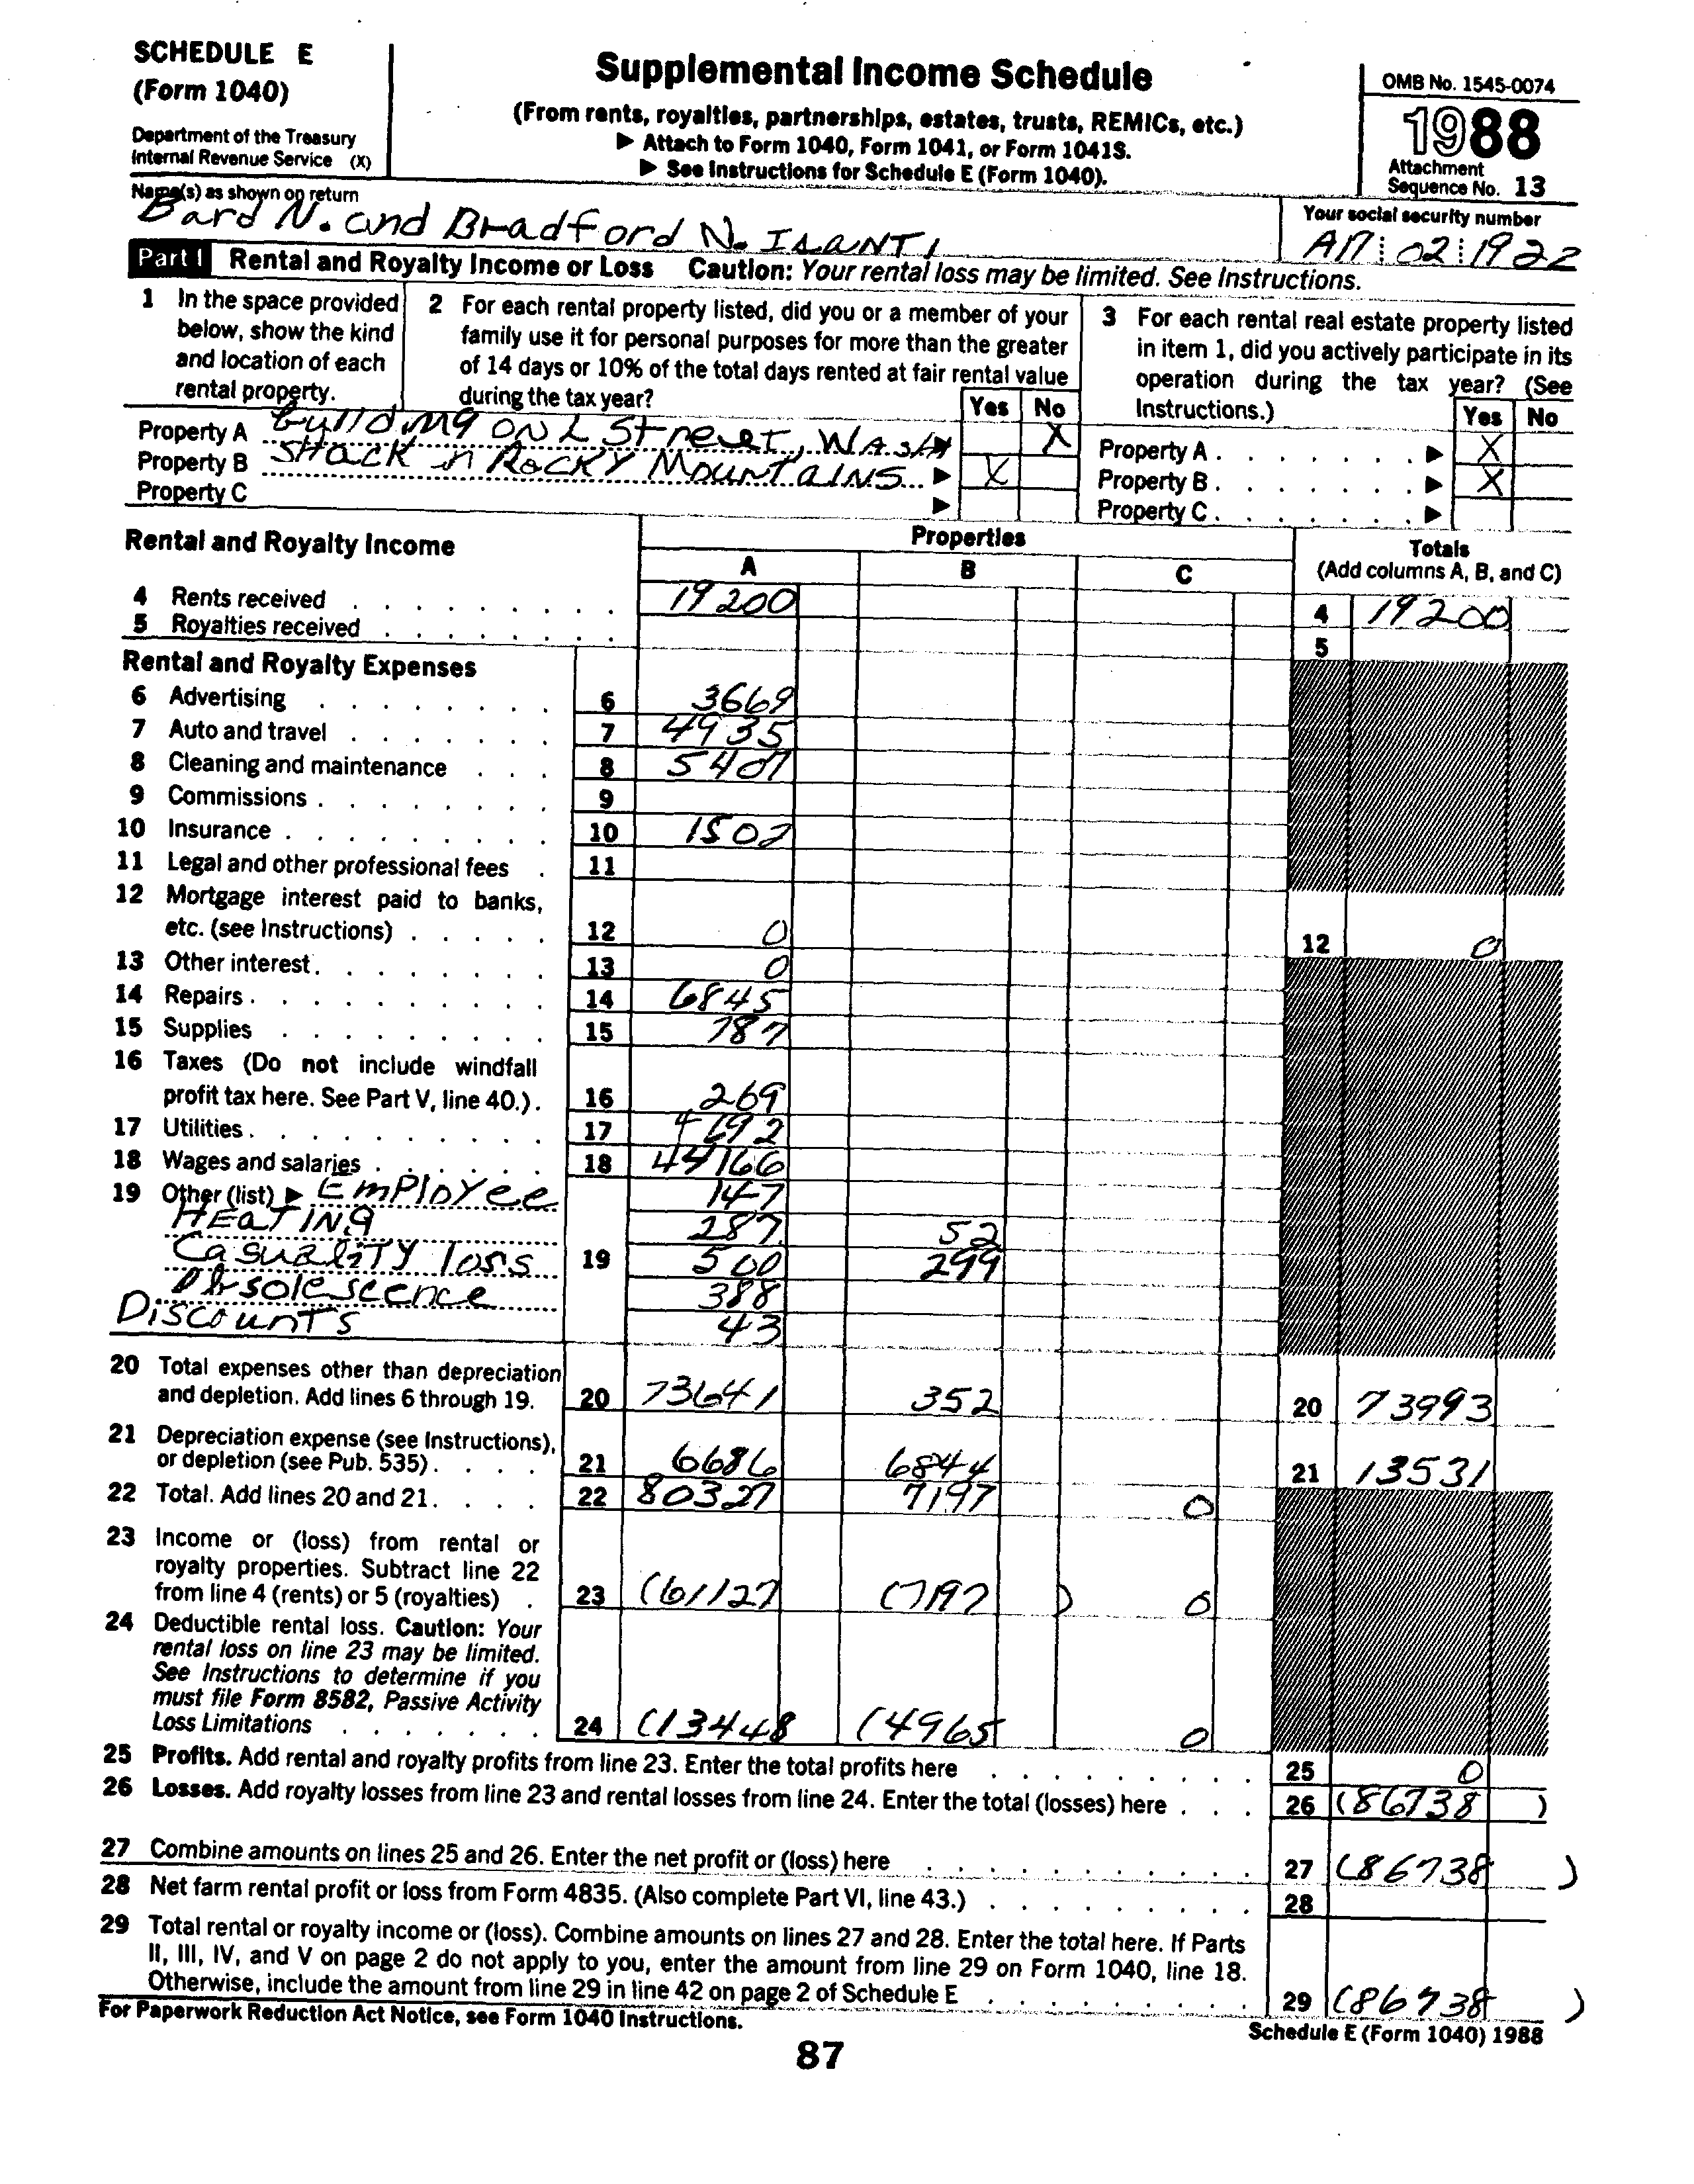 SCHEDULE E
(Form 1040)
Department of the Treasury
Internal Revenue Service (X)
Supplemental Income Schedule
(From rents, royalties, partnerships, estates, trusts, REMICs, etc.)
▶ Attach to Form 1040, Form 1041, or Form 1041S.
▶ See Instructions for Schedule E (Form 1040).
OMB No. 1545-0074
1988
Attachment
Sequence No. 13
Name(s) as shown on return
Bard N. and Bradford N. Isanti
Your social security number
A17 02 1922
Part I Rental and Royalty Income or Loss Caution: Your rental loss may be limited. See Instructions.
1 In the space provided below, show the kind and location of each rental property.
2 For each rental property listed, did you or a member of your family use it for personal purposes for more than the greater of 14 days or 10% of the total days rented at fair rental value during the tax year?
Yes No
3 For each rental real estate property listed in item 1, did you actively participate in its operation during the tax year? (See Instructions.)
Yes No
Property A building on L Street, Wash ▶ X
Property B Shack in Rocky Mountains ▶ X
Property C ▶
Property A ▶ X
Property B ▶ X
Property C ▶
Rental and Royalty Income
Properties
A B C
Totals
(Add columns A, B, and C)
4 Rents received 19200 4 19200
5 Royalties received 5
Rental and Royalty Expenses
6 Advertising 6 3669
7 Auto and travel 7 4935
8 Cleaning and maintenance 8 5407
9 Commissions 9
10 Insurance 10 1502
11 Legal and other professional fees 11
12 Mortgage interest paid to banks,
etc. (see Instructions) 12 0 12 0
13 Other interest 13 0
14 Repairs 14 6845
15 Supplies 15 787
16 Taxes (Do not include windfall
profit tax here. See Part V, line 40.) 16 269
17 Utilities 17 4692
18 Wages and salaries 18 44166
19 Other (list) ▶ Employee 147
Heating 287 52
Casuality loss 19 500 299
Obsolescence 388
Discounts 43
20 Total expenses other than depreciation
and depletion. Add lines 6 through 19. 20 73641 352 20 73993
21 Depreciation expense (see Instructions),
or depletion (see Pub. 535) 21 6686 6844 21 13531
22 Total. Add lines 20 and 21. 22 80327 7197 0
23 Income or (loss) from rental or
royalty properties. Subtract line 22
from line 4 (rents) or 5 (royalties) 23 (61127 (7197 ) 0
24 Deductible rental loss. Caution: Your
rental loss on line 23 may be limited.
See Instructions to determine if you
must file Form 8582, Passive Activity
Loss Limitations 24 (13448 (4965 0
25 Profits. Add rental and royalty profits from line 23. Enter the total profits here 25 0
26 Losses. Add royalty losses from line 23 and rental losses from line 24. Enter the total (losses) here 26 (86738 )
27 Combine amounts on lines 25 and 26. Enter the net profit or (loss) here 27 (86738 )
28 Net farm rental profit or loss from Form 4835. (Also complete Part VI, line 43.) 28
29 Total rental or royalty income or (loss). Combine amounts on lines 27 and 28. Enter the total here. If Parts
II, III, IV, and V on page 2 do not apply to you, enter the amount from line 29 on Form 1040, line 18.
Otherwise, include the amount from line 29 in line 42 on page 2 of Schedule E 29 (86738 )
For Paperwork Reduction Act Notice, see Form 1040 Instructions.
Schedule E (Form 1040) 1988
87